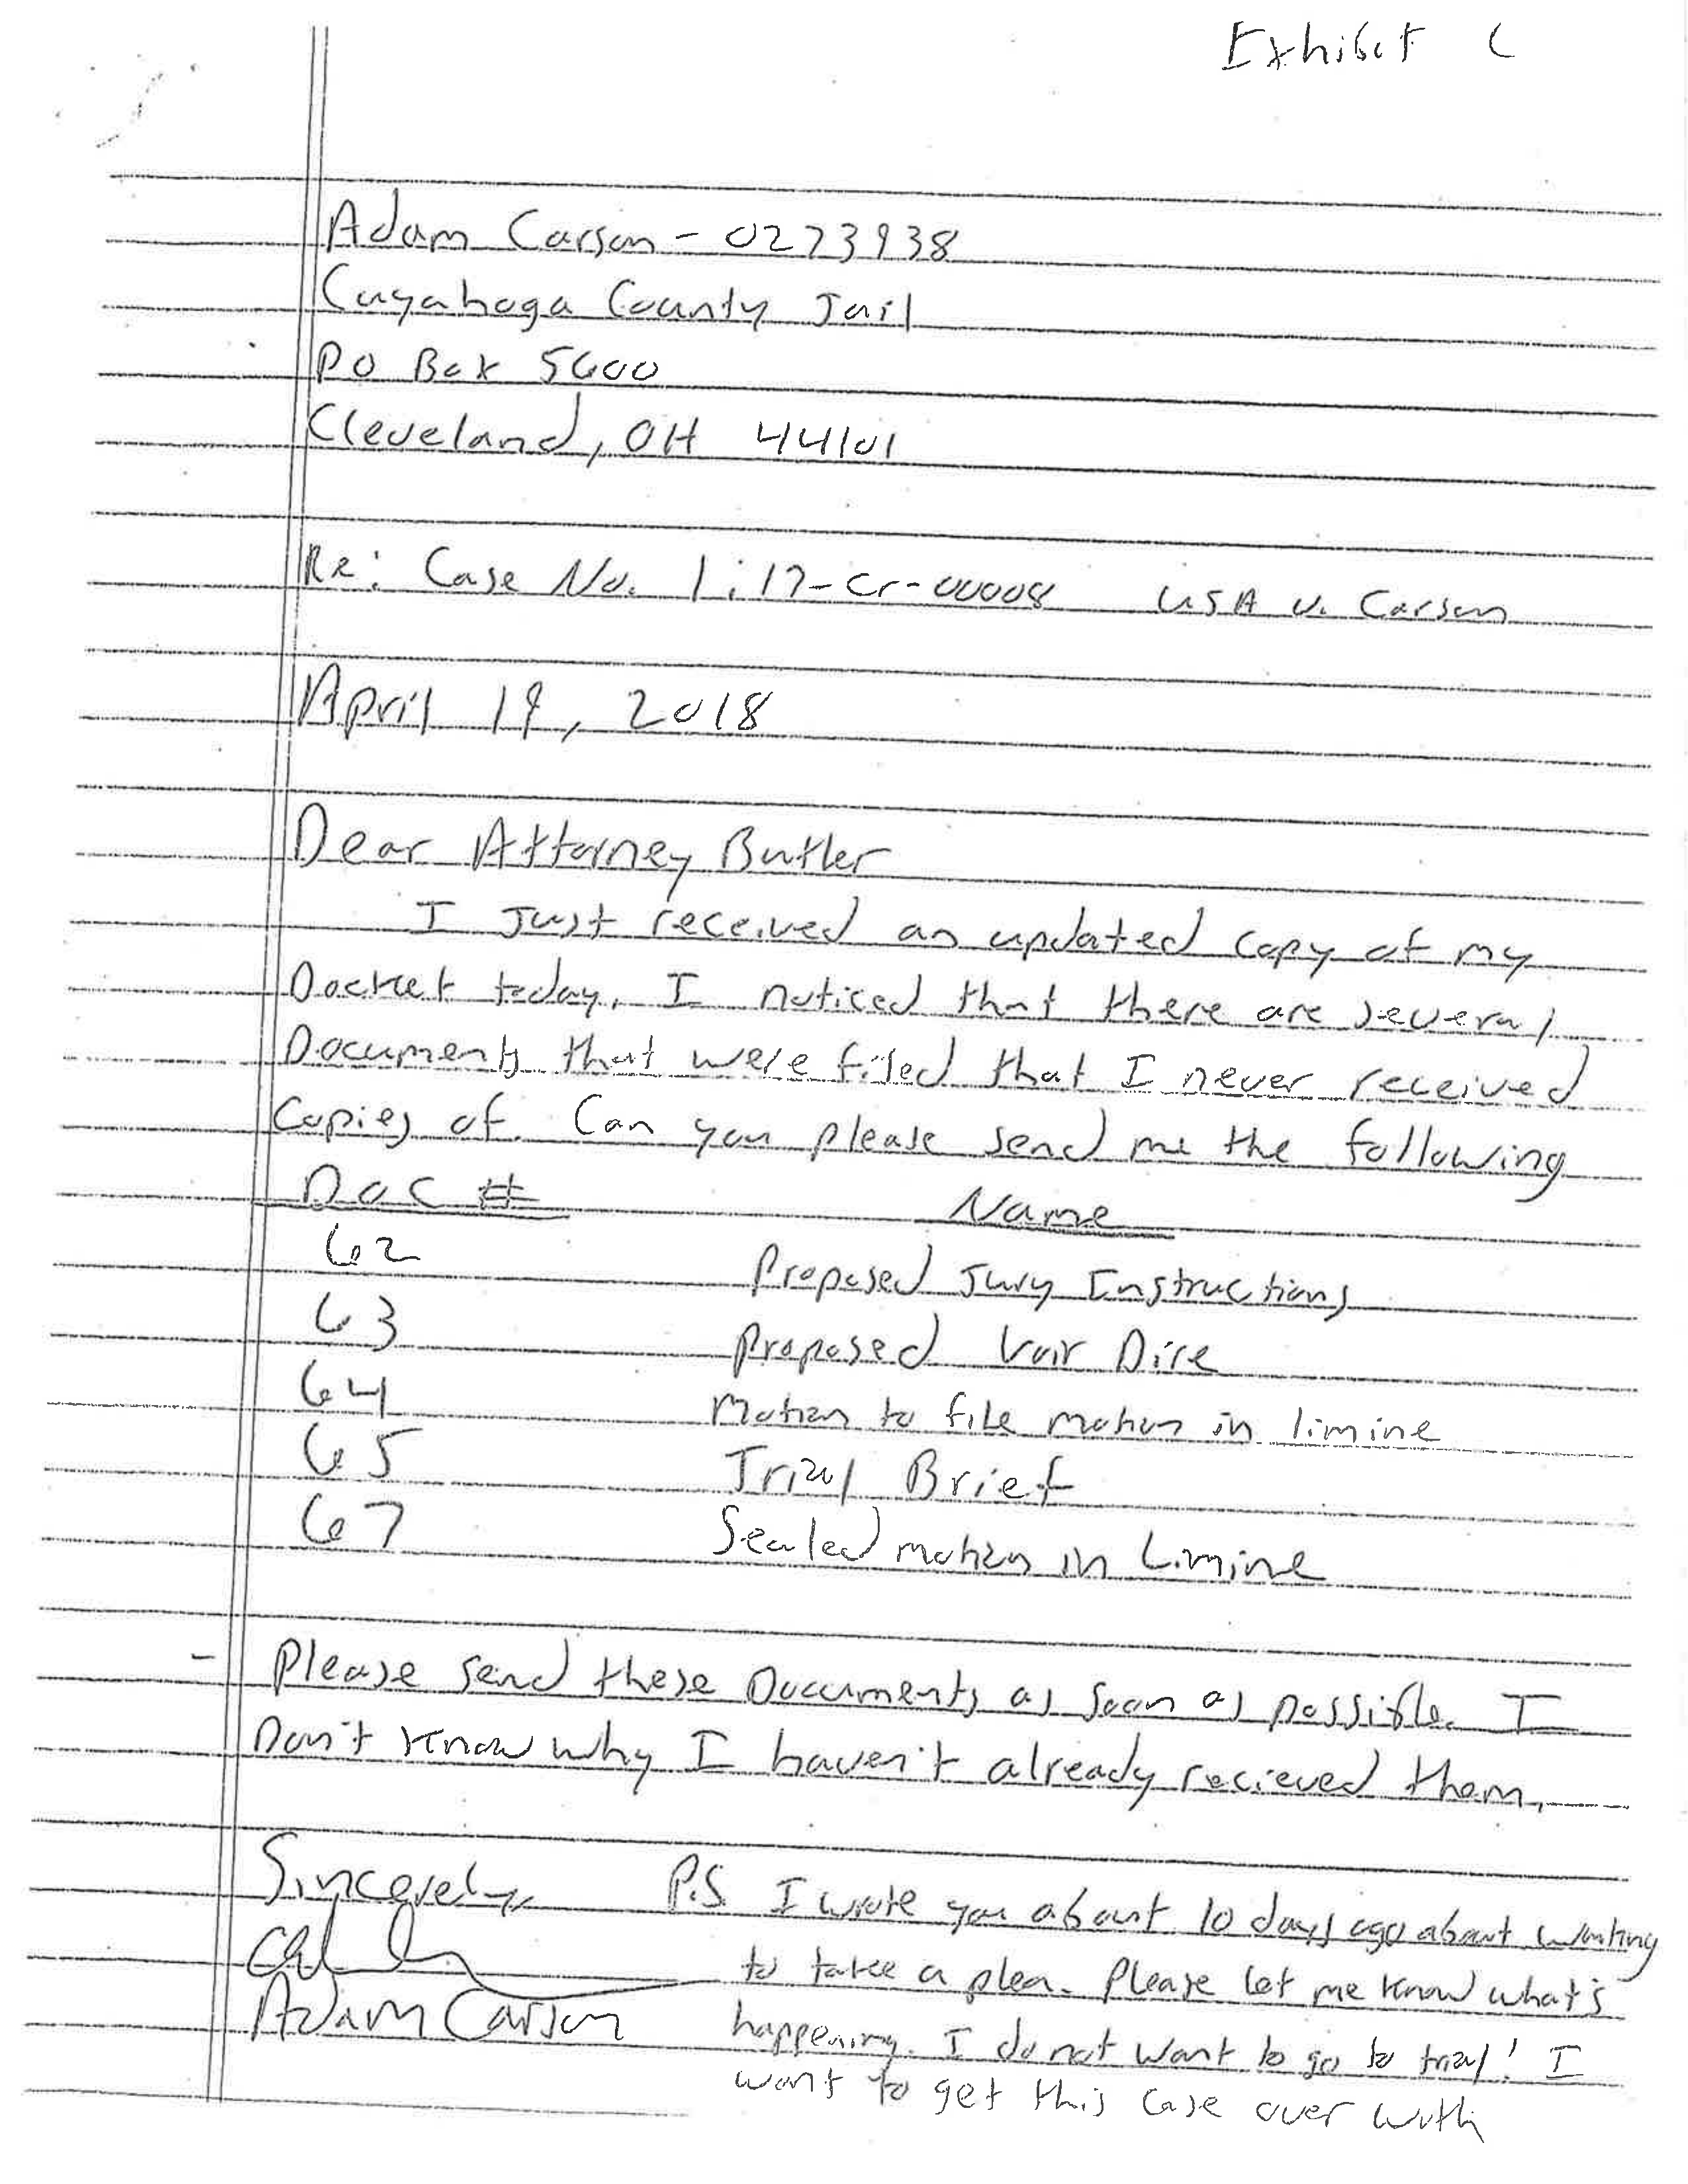 Exhibit C
Adam Carson - 0273938
Cuyahoga County Jail
PO Box 5600
Cleveland, OH 44101
Re: Case No. 1:17-cr-00008 USA v. Carson
April 19, 2018
Dear Attorney Butler
I Just received an updated copy of my
Docket today. I noticed that there are several
Documents that were filed that I never received
Copies of. Can you please send me the following
Doc # Name
62 Proposed Jury Instructions
63 Proposed Voir Dire
64 Motion to file motion in limine
65 Trial Brief
67 Sealed motion in Limine
- Please send these Documents as soon as possible. I
Don't know why I haven't already recieved them.
Sincerely, P.S. I wrote you about 10 days ago about wanting
to take a plea. Please let me know what's
Adam Carson happening. I do not want to go to trial! I
want to get this case over with